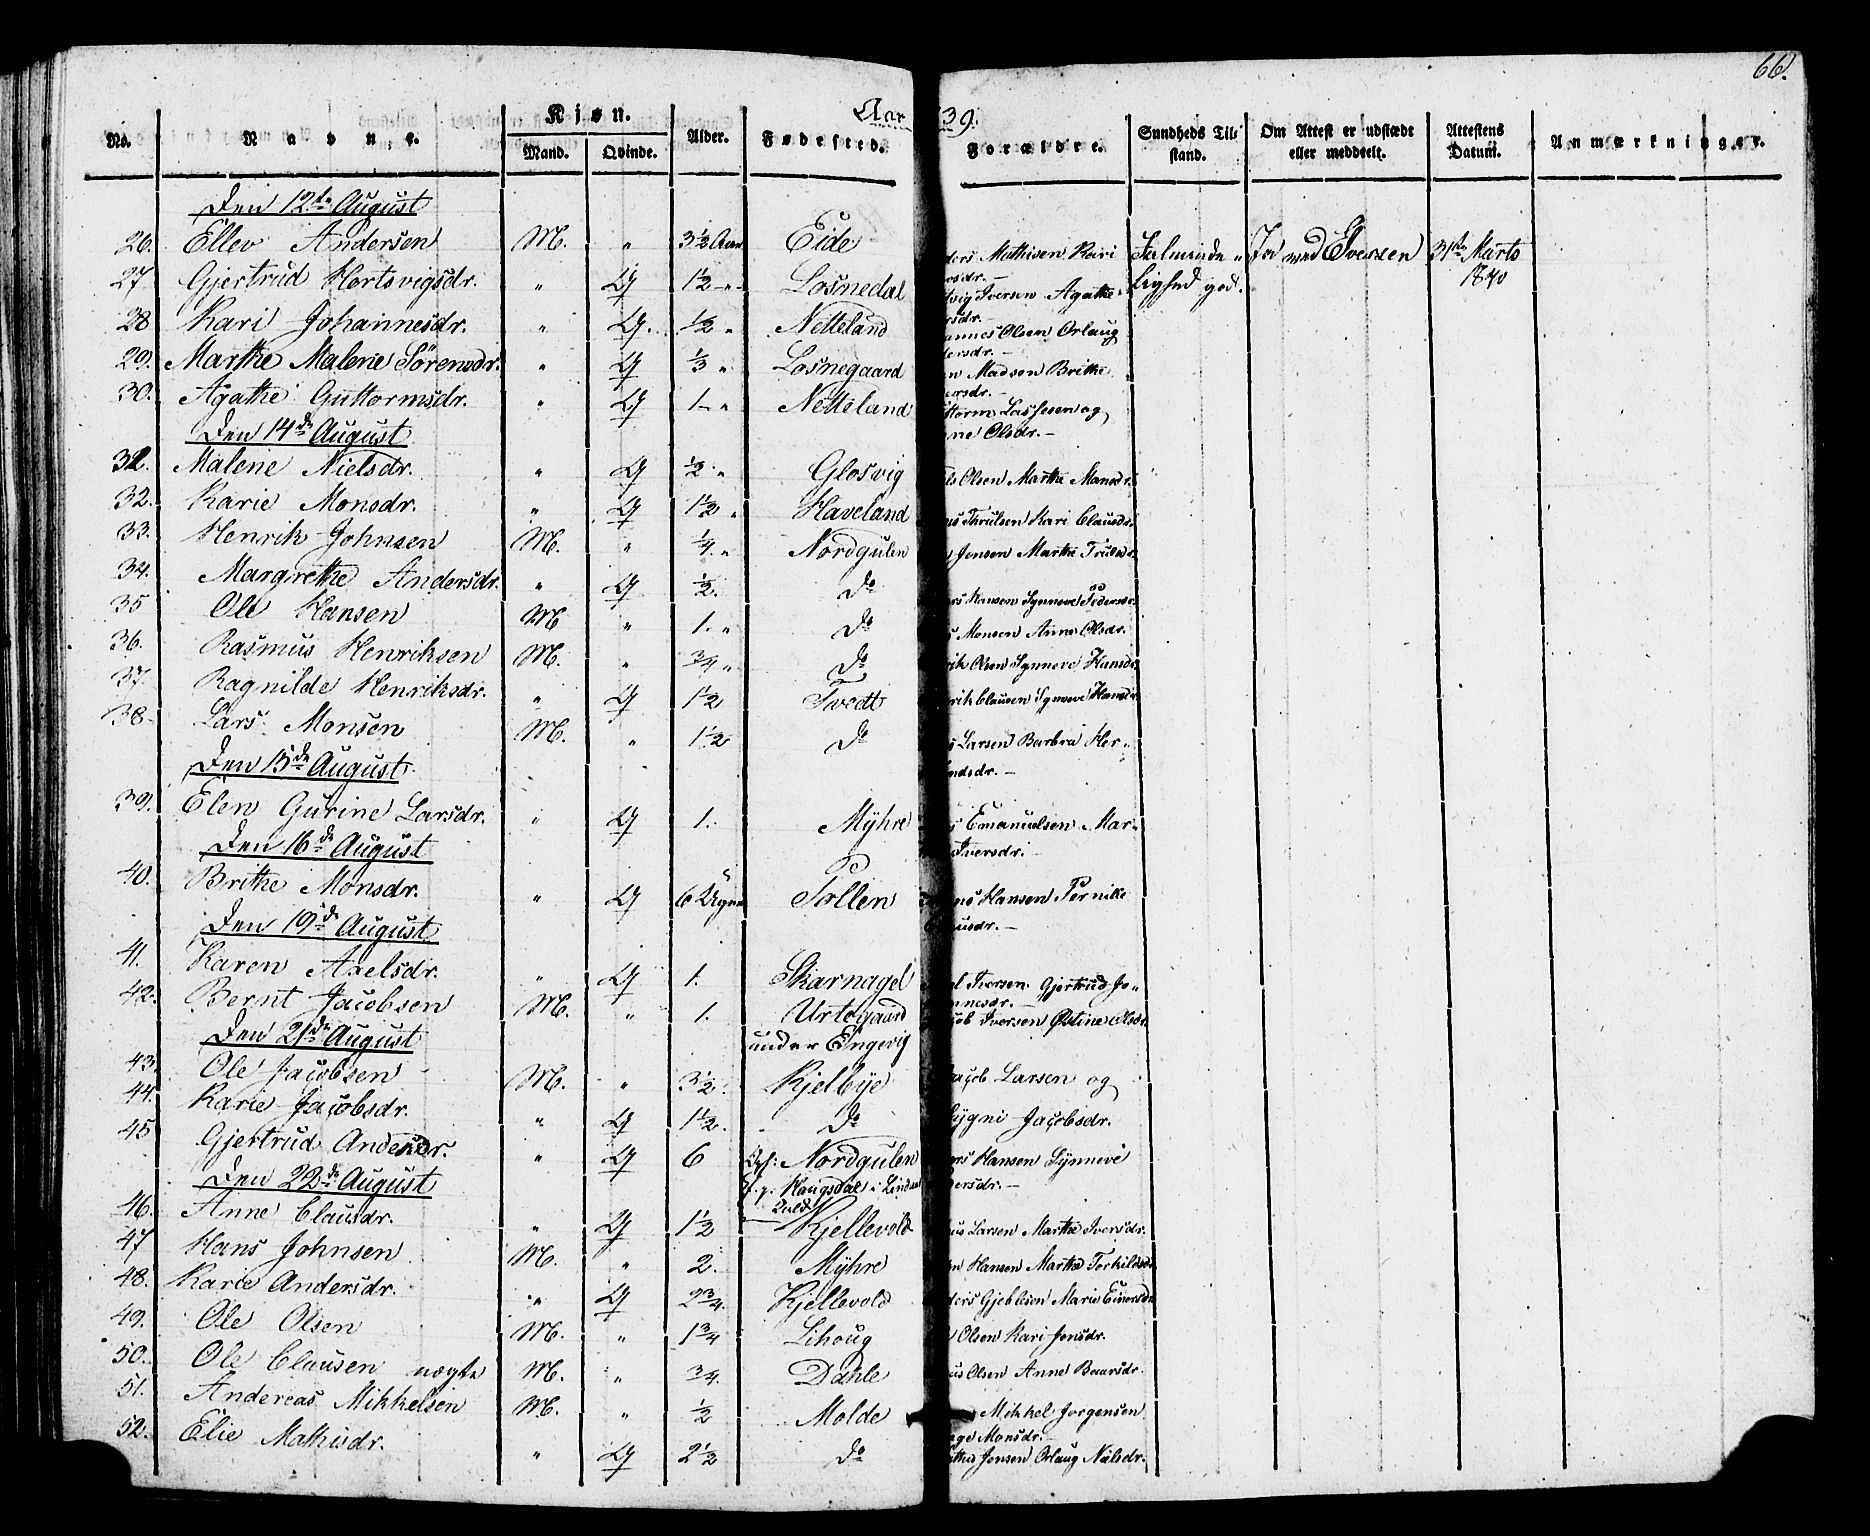 66.
Aar 39.
No. Navne. Kjøn. Mand. Qvinde. Alder. Fødested. Forældre. Sundheds Til stand. Om Attest er udstædt eller meddeelt. Attestens Datum. Anmærkninger.
Den 12te August
26. Ellev Andersen M. " 3½ Aar Eide ders Mathisen Kari rsdr.- Ja med Iversen 31te Marts 1840
27 Gjertrud Hartvigsdr. " Q 1½ - " - Losnedal vig Iversen Agathe rsdr. lighed god.
28 Kari Johannesdr. " Q. ½ " Netteland annes Olsen Orlaug dersdr.-
29. Marthe Malene Sörensdr. " Q ⅓ " Losnegaard en Madsen Brithe ersdr.-
30. Agathe Guttormsdr. " Q 1 - " Netteland ttorm Lassesen og ne Olsdr.-
Den 14de August
Malene Nielsdr. " Q ½ " Glosvig ls Olsen Marthe Monsdr.
32. Karie Monsdr. " Q 1½ " Haveland ns Thrulsen Kari Clausdr.
33. Henrik Johnsen M. " ¼ " Nordgulen Jensen Marthe Trulsdr.
34. Margrethe Andersdr. " Q ½. do ers Hansen Synneve Pedersdr.
35 Ole Hansen M " 1. " do s Monsen Anne Olsdr.
36. Rasmus Henriksen M. " ¾ " do rik Olsen Synneve Hansdr.
37. Ragnilde Henriksdr. " Q 1½ Tvedt rik Clausen Synneve Hansdr.
38 Lars Monsen M. " 1½ do s Larsen Barbra Her- ndsdr.-
Den 15de August
39. Elen Gurine Larsdr. " Q 1. Mÿhre s Emanuelsen Mar- Iversdr.-
Den 16de August
40. Brithe Monsdr. " Q 6 Uger Pollen ns Hansen Pernille usdr.-
Den 19de August
41. Karen Axelsdr. " Q 1. Skarnagel el Iversen Gjertrud Jo- nnesdr.-
42. Bernt Jacobsen M. " 1. Urtegaard under Engevig cob Iversen Østine Olsdr.
Den 21de August
43. Ole Jacobsen M. " 3½ Kjelbÿe acob Larsen og
44. Karie Jacobsdr. " Q 1½ do ygni Jacobsdr.
45 Gjertrud Andersdr. " Q 6 Nordgulen Haugsdal i Lindaas ers Hansen Sÿnneve dersdr.-
Den 22de August
46. Anne Clausdr. " Q 1½ Kjellevold us Larsen Marthe Iversdr.
47 Hans Johnsen M. " 2. Mÿhre n Hansen Marthe Torkildsdr.
48. Karie Andersdr. " Q 2¾. Kjellevold ders Gjeblesen Marie Einersdr.
49. Ole Olsen M. " 1¾ Lihoug Olsen Kari Jensdr.
50. Ole Clausen uægte M. " ¾. Dahle us Olsen Anne Baarsdr
51. Andereas Mikkelsen M. " ½ Molde Mikkel Jorgensen nge Monsdr.-
52. Elie Mathisdr. " Q 2½ do athis Jensen Orlaug Nielsdr.